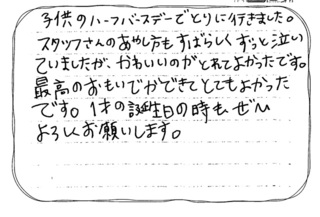 子供のハーフバースデーでとりに行きました。
スタッフさんのあやし方もすばらしくずっと泣い
ていましたが、かわいいのがとれてよかったです。
最高のおもいでができてとてもよかった
です。1才の誕生日の時も、ぜひ
よろしくお願いします。